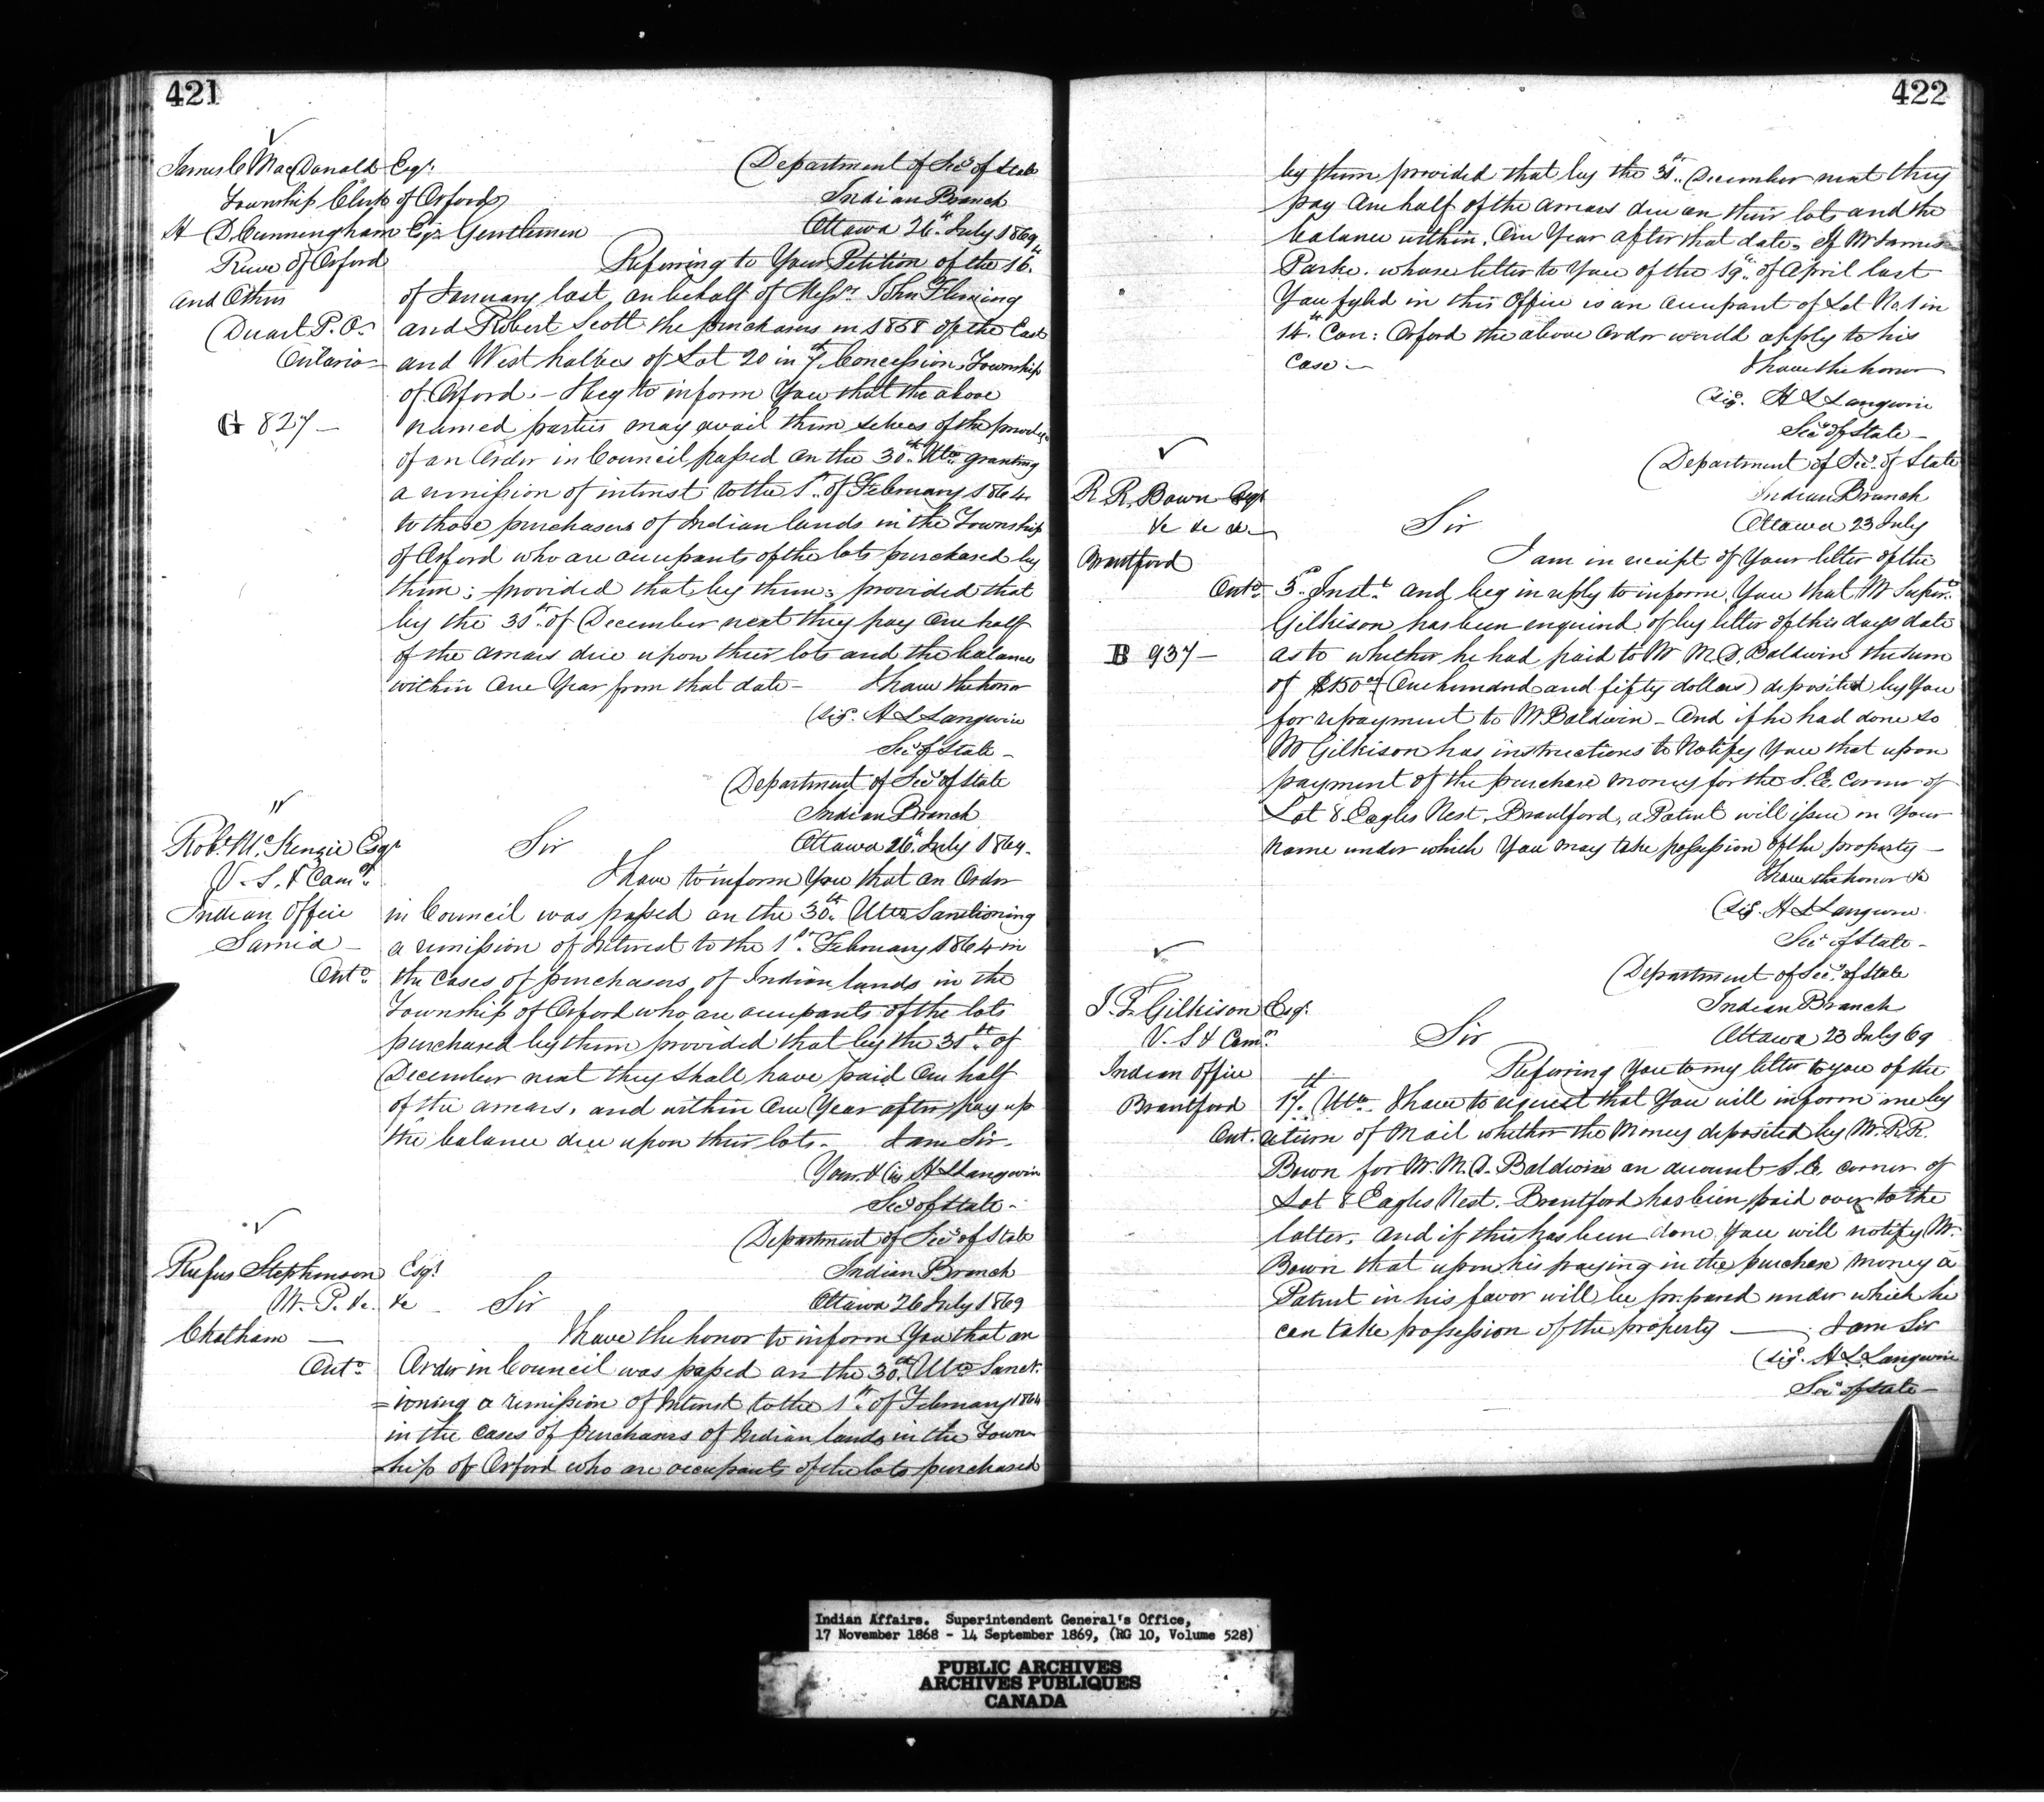 421
James C MacDonald Esqr.
Township Clerk of Orford
H D. Cunningham Esqr. Gentlemen
Reeve of Orford
and Others
Duart P.O.
Ontario
G 827
Department of Secy of State
Indian Branch
Ottawa 26th July 1869
Referring to Your Petition of the 16th
of January last, on behalf of Messrs. John Fleming
and Robert Scott the purchasers in 1868 of the East
and West halves of Lot 20 in 7th Concession, Township
of Orford. - I beg to inform You that the above
named parties may avail them selves of the
of an Order in Council passed on the 30th Ulto granting
a remission of interest to the 1st of February 1864
to those purchasers of Indian lands in the Township
of Orford who are occupants of the lots purchased by
them; provided that by them; provided that
by the 31st of December next they pay One half
of the arrears due upon their lots and the balance
within One Year from that date - I have the honor
Sig. H L Langevin
Secy of State -
Department of Secy of State
Indian Branch
Ottawa 26th July 1869.
Robt. McKenzie Esqr
V. S. & Comr.
Indian Office
Sarnia -
Onto.
Sir
I have to inform You that an Order
in Council was passed on the 30th Ulto Sanctioning
a remission of Interest to the 1st February 1864 in
the cases of purchasers of Indian lands in the
Township of Orford who are occupants of the lots
purchased by them provided that by the 31st of
December next they shall have paid One half
of the arrears, and within One Year after pay up
the balance due upon their lots. I am Sir.
Your. & (s) H L Langevin
Secy of State -
Department of Secy of State
Indian Branch
Ottawa 26 July 1869
Rufus Stephenson Esqr
M. P. &c. &c
Chatham -
Onto.
Sir
I have the honor to inform You that an
Order in Council was passed on the 30th Ulto Sanct-
=ioning a remission of Interest to the 1st of February 1864
in the cases of purchasers of Indian lands in the Town-
ship of Orford who are occupants of the lots purchased
422
by them provided that by the 31st December next they
pay One half of the arrears due on their lots and the
balance within One Year after that date. If Mr James
Parke. whose letter to You of the 19th of April last
You fyled in this Office is an occupant of Lot No. 1 in
14th Con: Orford the above Order would apply to his
case. -
I have the honor
Sig. H L Langevin
Secy of State -
Department of Secy. of State
Indian Branch
Ottawa 23 July
R. R. Bown Esqr
&c &c &c
Brantford
Onto.
B 937 -
Sir
I am in receipt of Your letter of the
5th Inst. and beg in reply to inform You that Mr Supert.
Gilkison has been enquired of by letter of this days date
as to whether he had paid to Mr M. Q. Baldwin the sum
of $150 00/ (One hundred and fifty dollars) deposited by You
for repayment to Mr Baldwin - And if he had done so
Mr Gilkison has instructions to Notify You that upon
payment of the purchase money for the S. E. Corner of
Lot 8 Eagles Nest, Brantford, a Patent will issue in Your
name under which You may take possession of the property -
I have the honor &c
Sig. H L Langevin
Secy of State -
Department of Secy. of State
Indian Branch
Ottawa 23 July 69
J. T. Gilkison Esqr.
V. S & Comr.
Indian Office
Brantford
Ont.
Sir
Referring You to my letter to you of the
17th Ulto I have to request that You will inform me by
return of Mail whether the Money deposited by Mr. R. R.
Bown for Mr. M. Q. Baldwin on account S. E. corner of
Lot 8 Eagles Nest. Brantford has been paid over to the
latter, and if this has been done You will notify Mr.
Bown that upon his paying in the purchase money a
Patent in his favor will be prepared under which he
can take possession of the property - I am Sir
Sig. H. L. Langevin
Secy of State -
Indian Affairs. Superintendent General's Office,
17 November 1868 - 14 September 1869, (RG 10, Volume 528)
PUBLIC ARCHIVES
ARCHIVES PUBLIQUES
CANADA